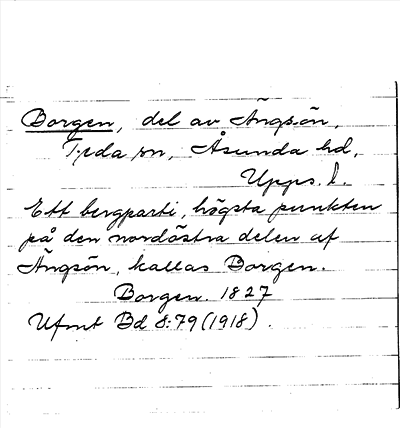 Borgen, del av Ängsön,
Tjda sn, Åsunda hd,
Upps. l.
Ett bergparti, högsta punkten
på den nordöstra delen af
Ängsön, kallas Borgen.
Borgen. 1827
Ufmt Bd 8:79 (1918).